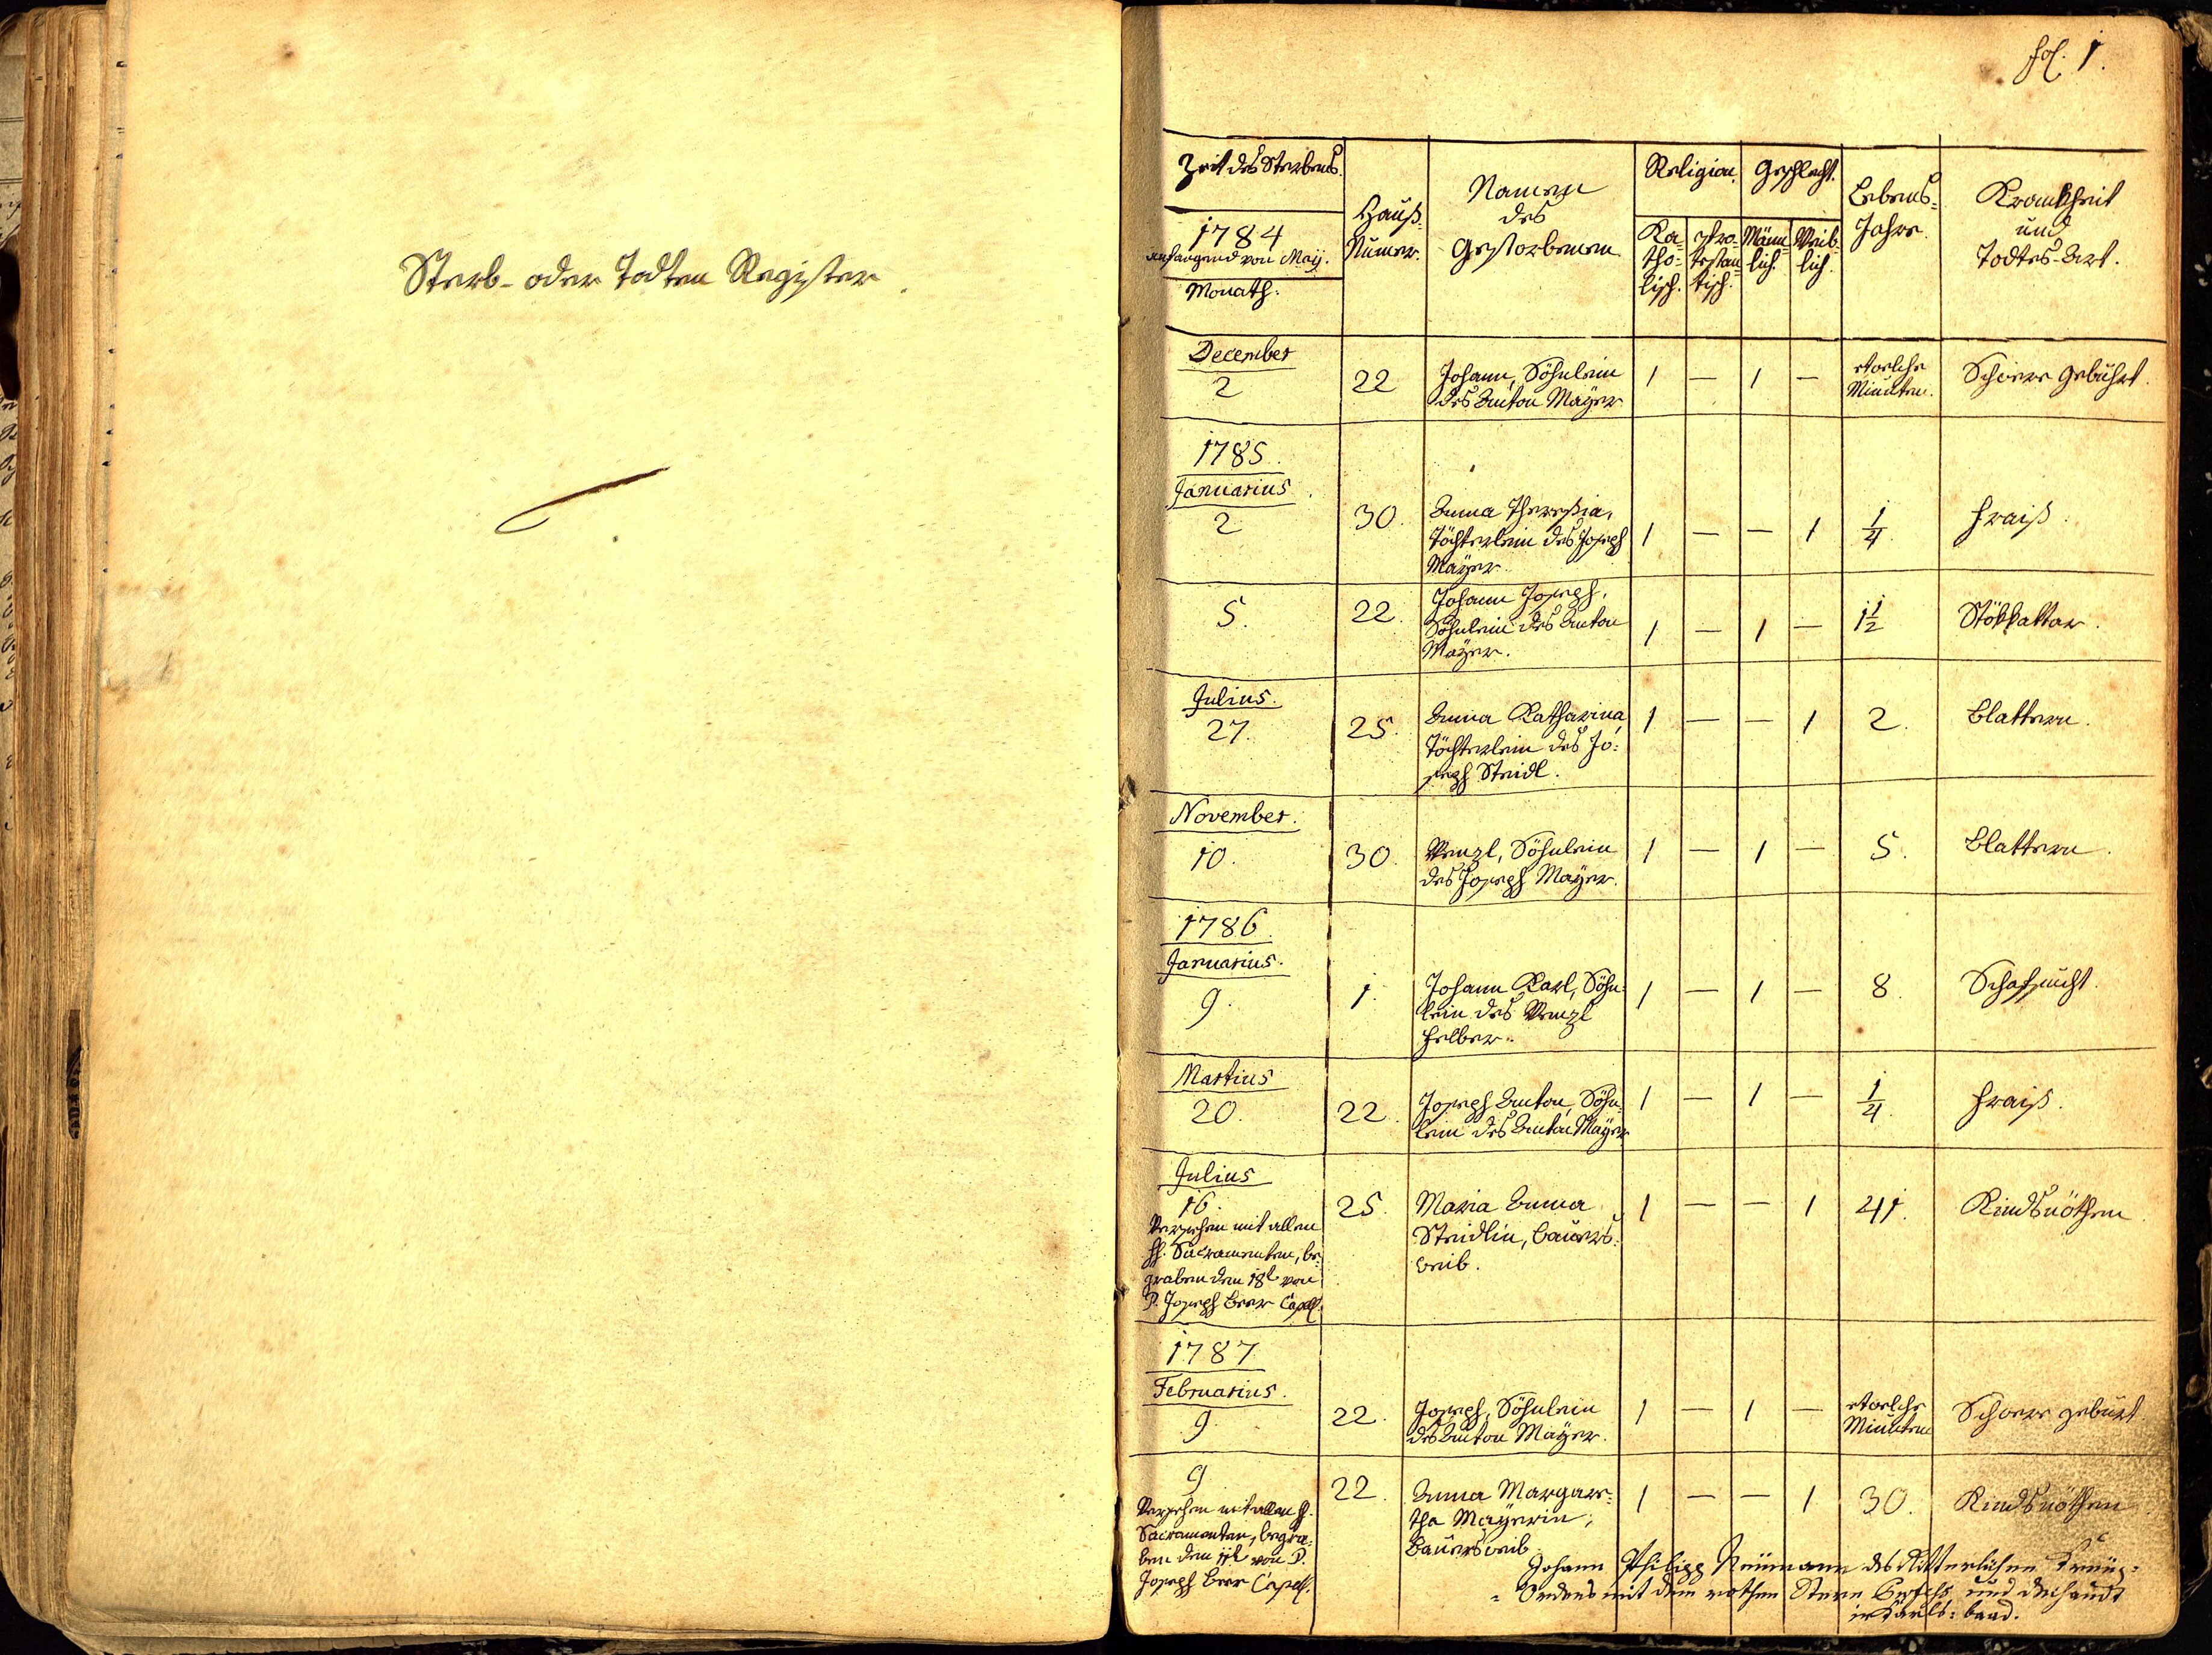 Sterb- oder Todten Register.
fol. 1.
Zeit des Sterbens.
1784
anfangend von Maÿ.
Monath.
Hauß-
Numer.
Namen
des
Gestorbenen
Religion.
Ka=
tho=
lisch.
Pro=
testan=
tisch.
Geschlecht.
Männ=
lich.
Weib=
lich.
Lebens=
Jahre.
Krankheit
und
Todtes-Art.
December
2
22
Johann, Söhnlein
des Anton Maÿer
1 — 1 —
etwelche
Minuten.
Schwere Gebuhrt.
1785.
Januarius
2
30.
Anna Theresia,
Töchterlein des Joseph
Maÿer
1 — — 1
1/4.
Fraiß.
5.
22.
Johann Joseph,
Söhnlein des Anton
Maÿer.
1 — 1 —
1 1/2
Stökkattar.
Julius.
27.
25.
Anna Katharina
Töchterlein des Jo=
seph Steidl.
1 — — 1
2.
Blattern.
November.
10.
30.
Wenzl, Söhnlein
des Joseph Maÿer.
1 — 1 —
5.
Blattern.
1786.
Januarius.
9.
1.
Johann Karl, Söhn=
lein des Wenzl
Felber.
1 — 1 —
8.
Martius
20.
22.
Joseph Anton, Söhn=
lein des Anton Maÿer
1 — 1 —
1/4.
Fraiß.
Julius
16.
Versehen mit allen
hh. Sacramenten, be=
graben den 18t von
P. Joseph Beer Capell.
25.
Maria Anna
Steidlin, Bauers=
weib.
1 — — 1
41.
Kindsnöthen.
1787
Februarius.
9
22.
Joseph, Söhnlein
des Anton Maÿer.
1 — 1 —
etwelche
Minuten
Schwere geburt
9
Versehen mit allen hh.
Sacramenten, begra=
ben den 11t von P.
Joseph Beer Capell.
22.
Anna Margare=
tha Maÿerin,
Bauersweib
1 — — 1
30.
Kindsnöthen
Johann Philipp Neümann des Ritterlichen Kreüz=
= Ordens mit dem rothen Stern und dechandt
in Karls=baad.